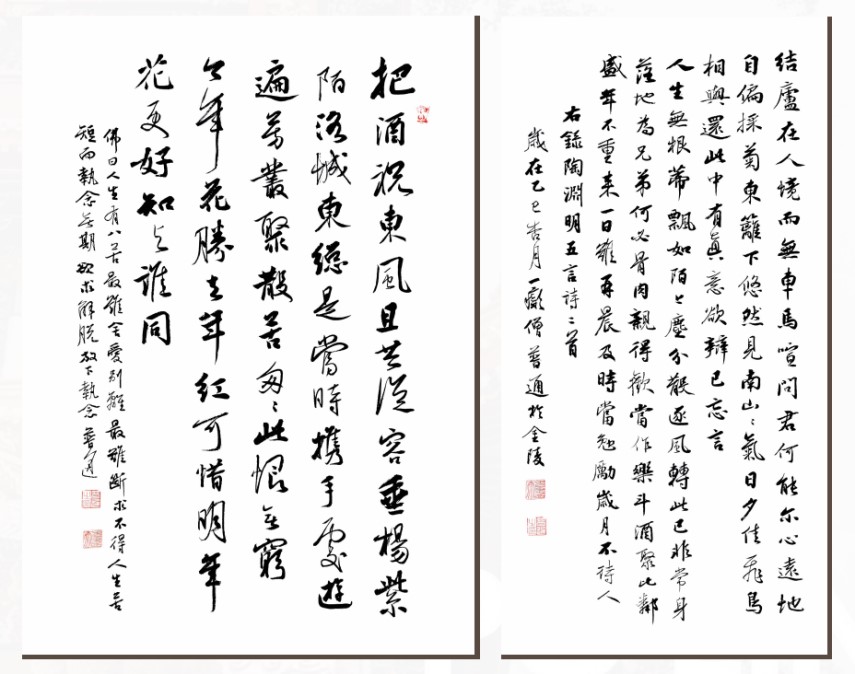 把酒祝東風且共從容垂楊紫
陌洛城東總是當時携手處遊
遍芳叢聚散苦匆〻此恨无窮
今年花勝去年紅可惜明年
花更好知与誰同
佛曰人生有八苦最難舍愛別離最難斷求不得人生苦
短而執念无期欲求解脱放下執念普通
結廬在人境而無車馬喧問君何能尔心遠地
自偏採菊東籬下悠然見南山〻氣日夕佳飛鳥
相與還此中有真意欲辯已忘言
人生無根蒂飄如陌上塵分散逐風轉此已非常身
落地為兄弟何必骨肉親得歡當作樂斗酒聚比鄰
盛年不重来一日難再晨及時當勉勵歲月不待人
右錄陶淵明五言詩二首
歲在乙巳杏月一癡僧普通於金陵